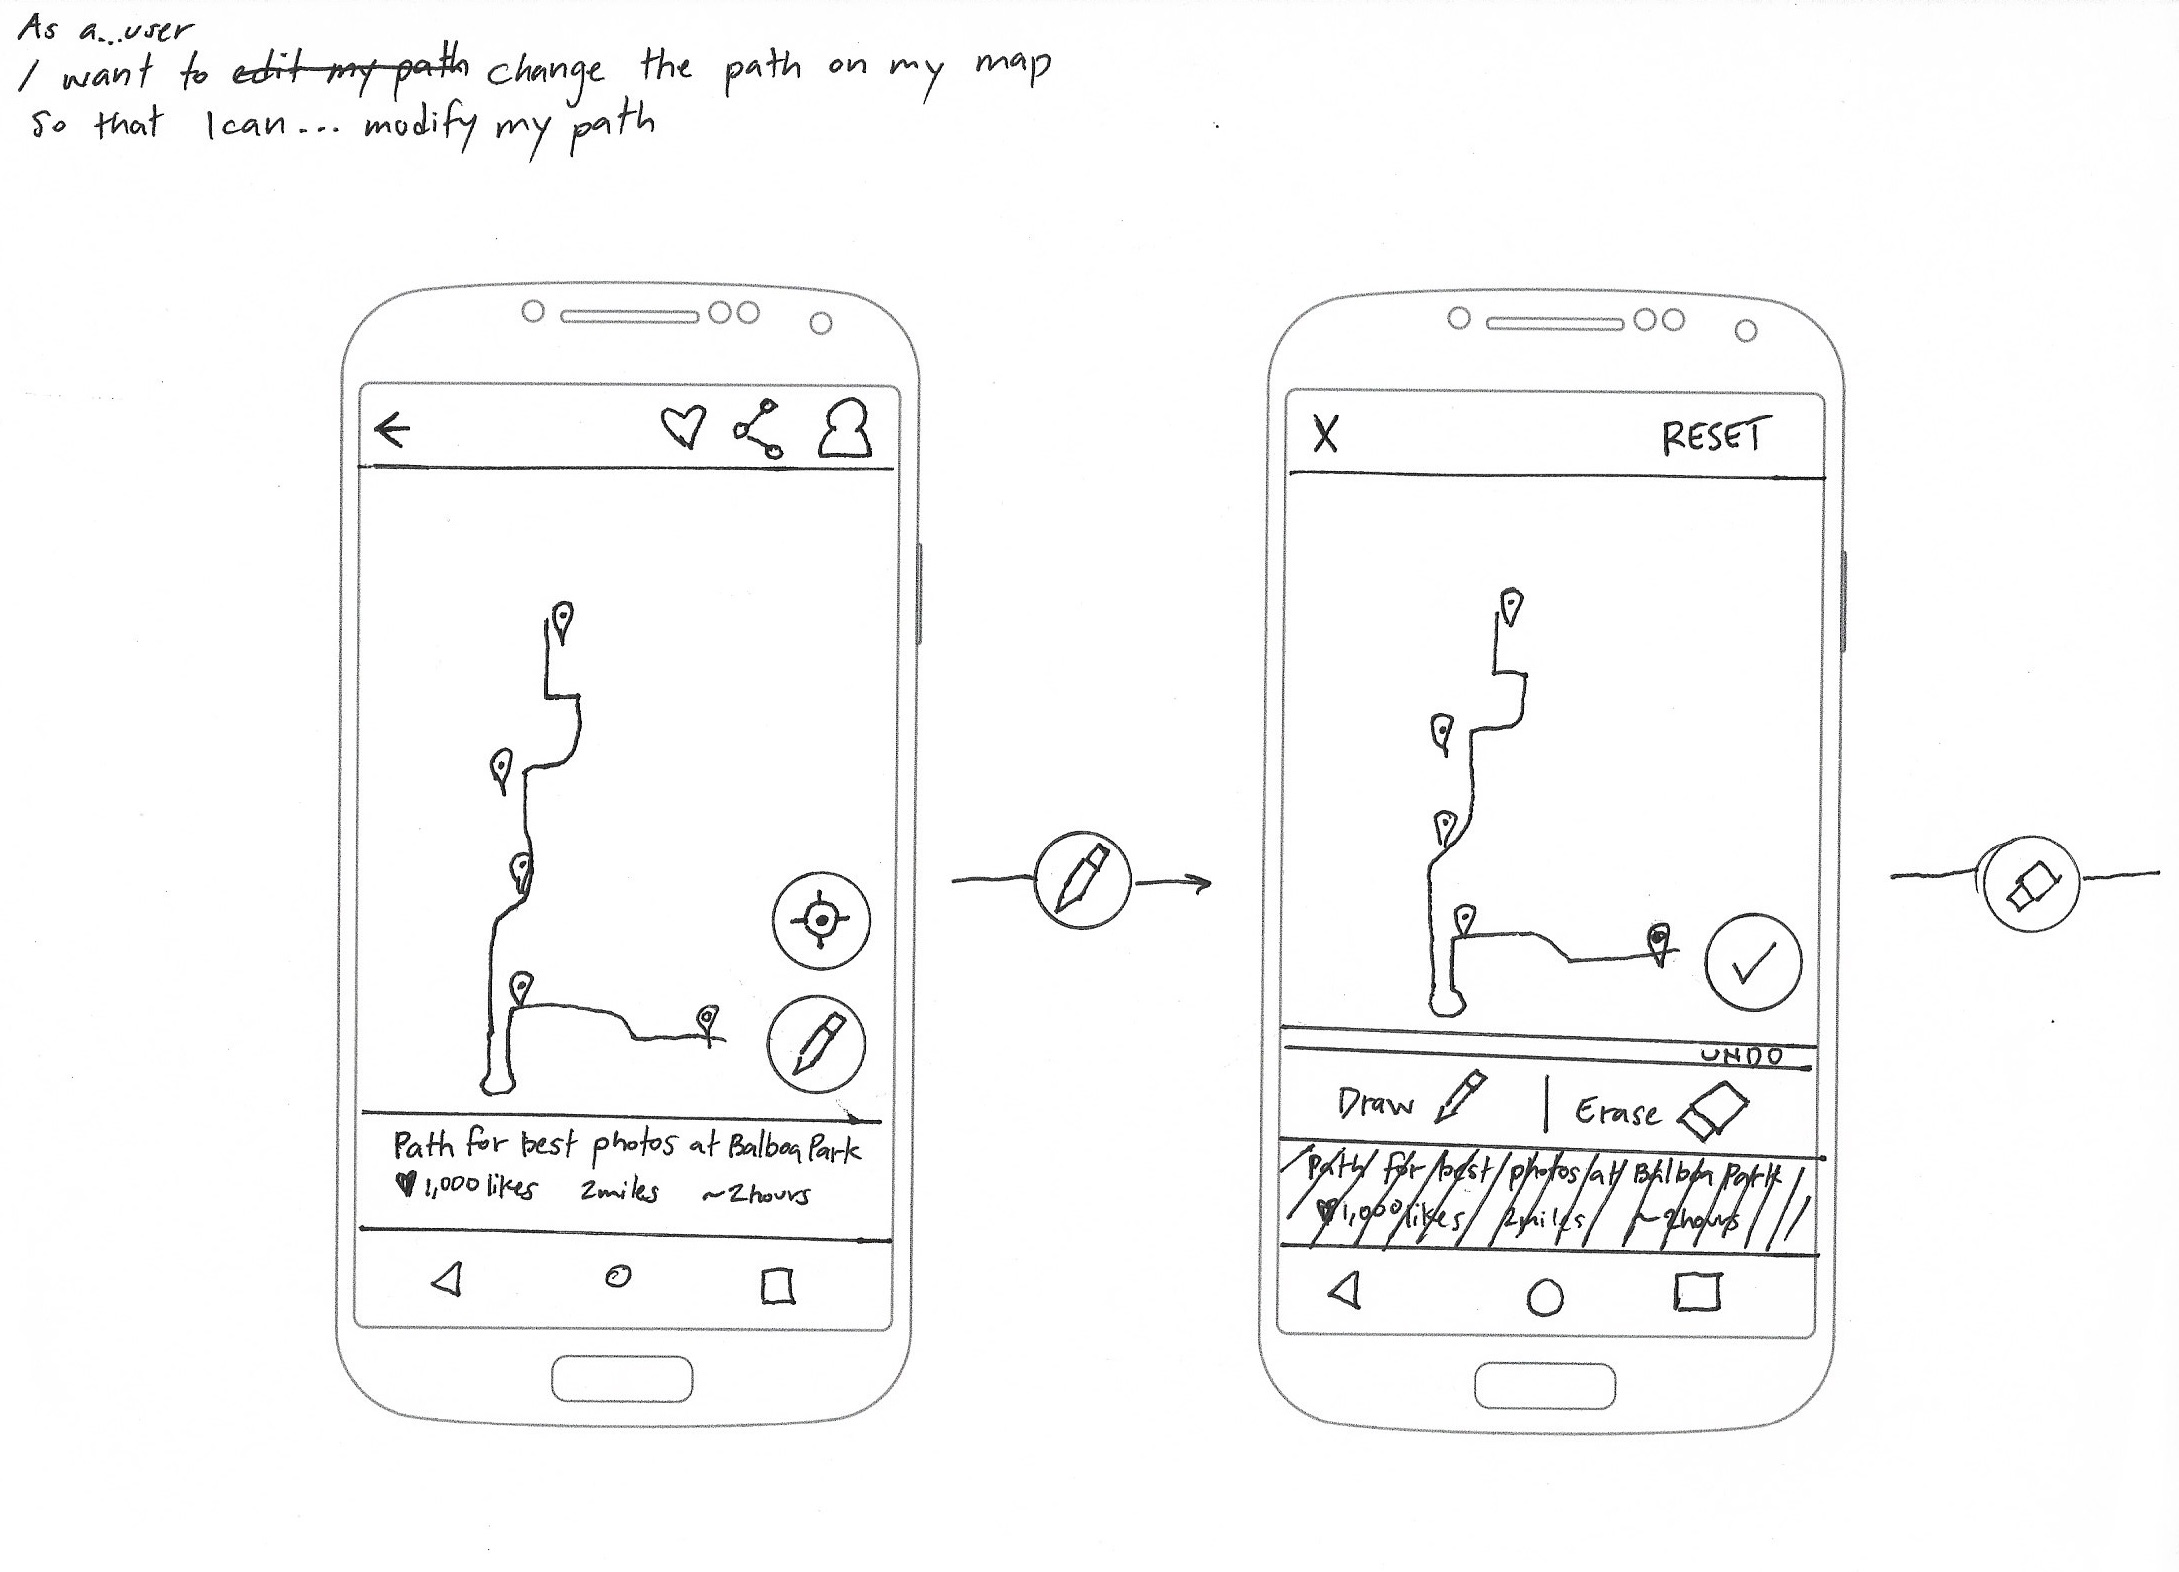 As a...user
I want to edit my path change the path on my map
So that I can... modify my path
Path for best photos at Balboa Park
1,000 likes 2miles ~2hours
X RESET
UNDO
Draw | Erase
Path for best photos at Balboa Park
1,000 likes 2miles ~2hours